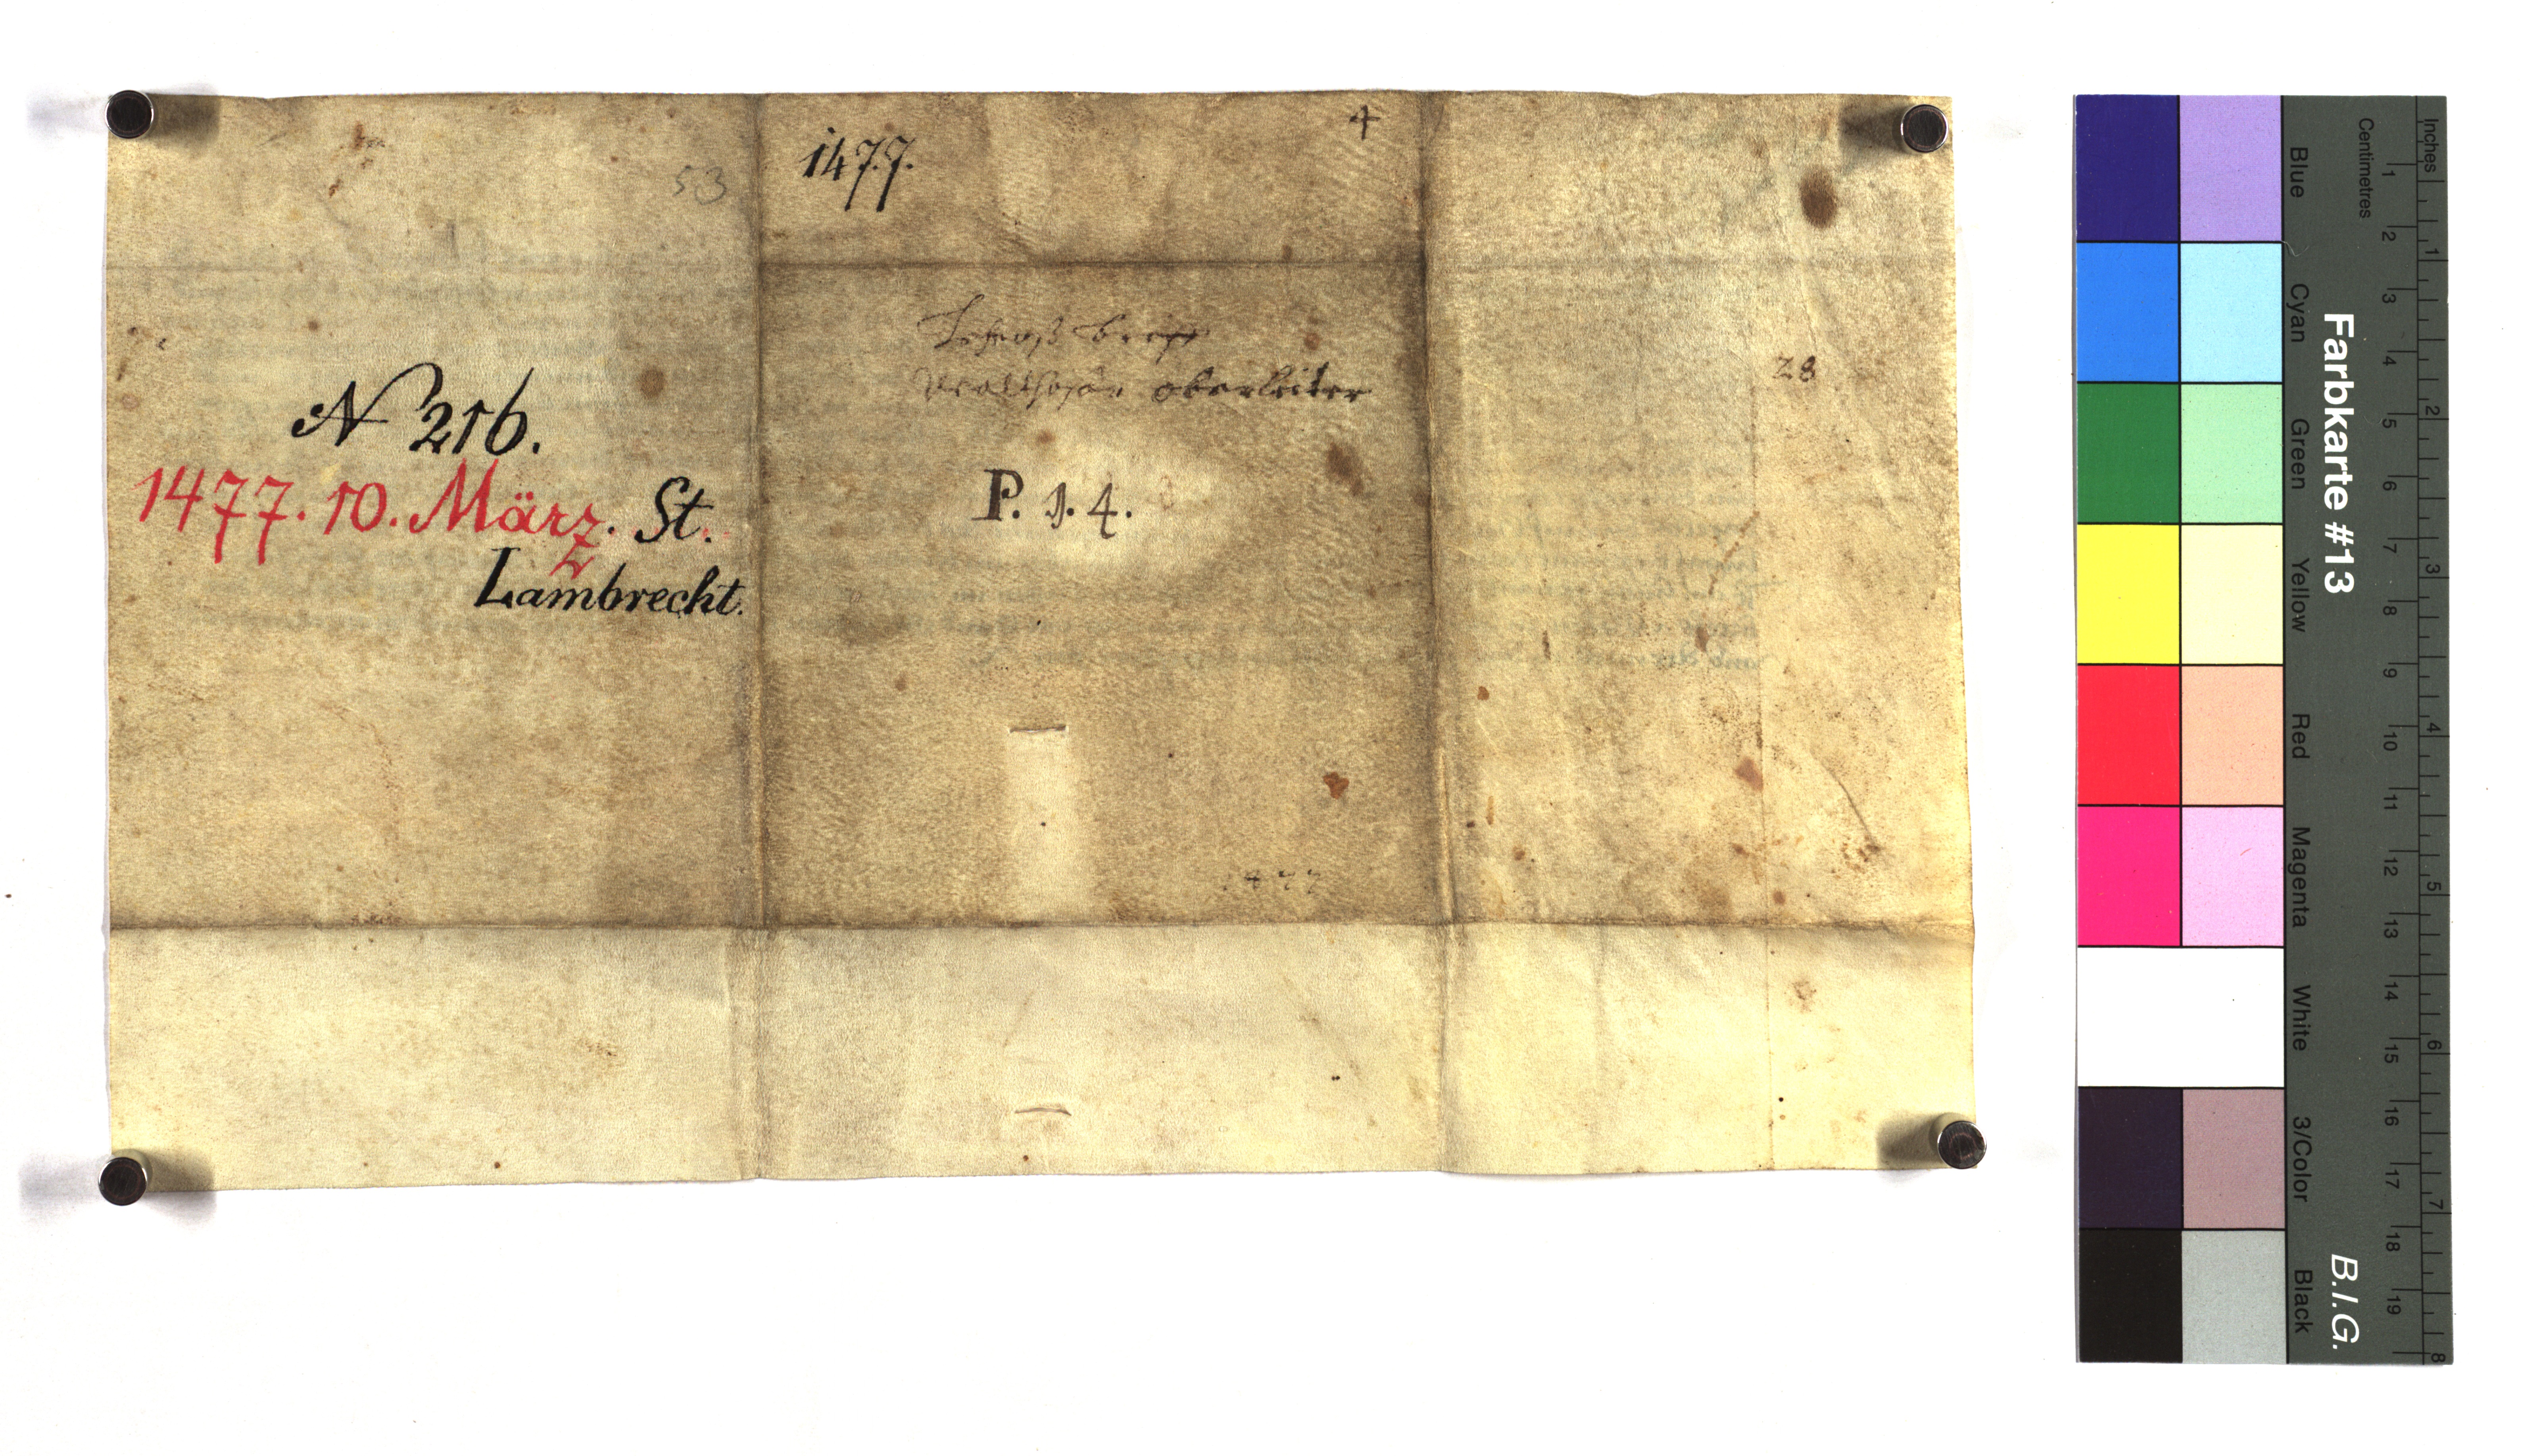 53
1477.
4
N 216.
1477. 10. März. St.
Lambrecht.
oberleiter
P. 1. 4.
28
1477
Farbkarte #13
B.I.G.
Blue
Cyan
Green
Yellow
Red
Magenta
White
3/Color
Black
Centimetres
1 2 3 4 5 6 7 8 9 10 11 12 13 14 15 16 17 18 19
Inches
1 2 3 4 5 6 7 8